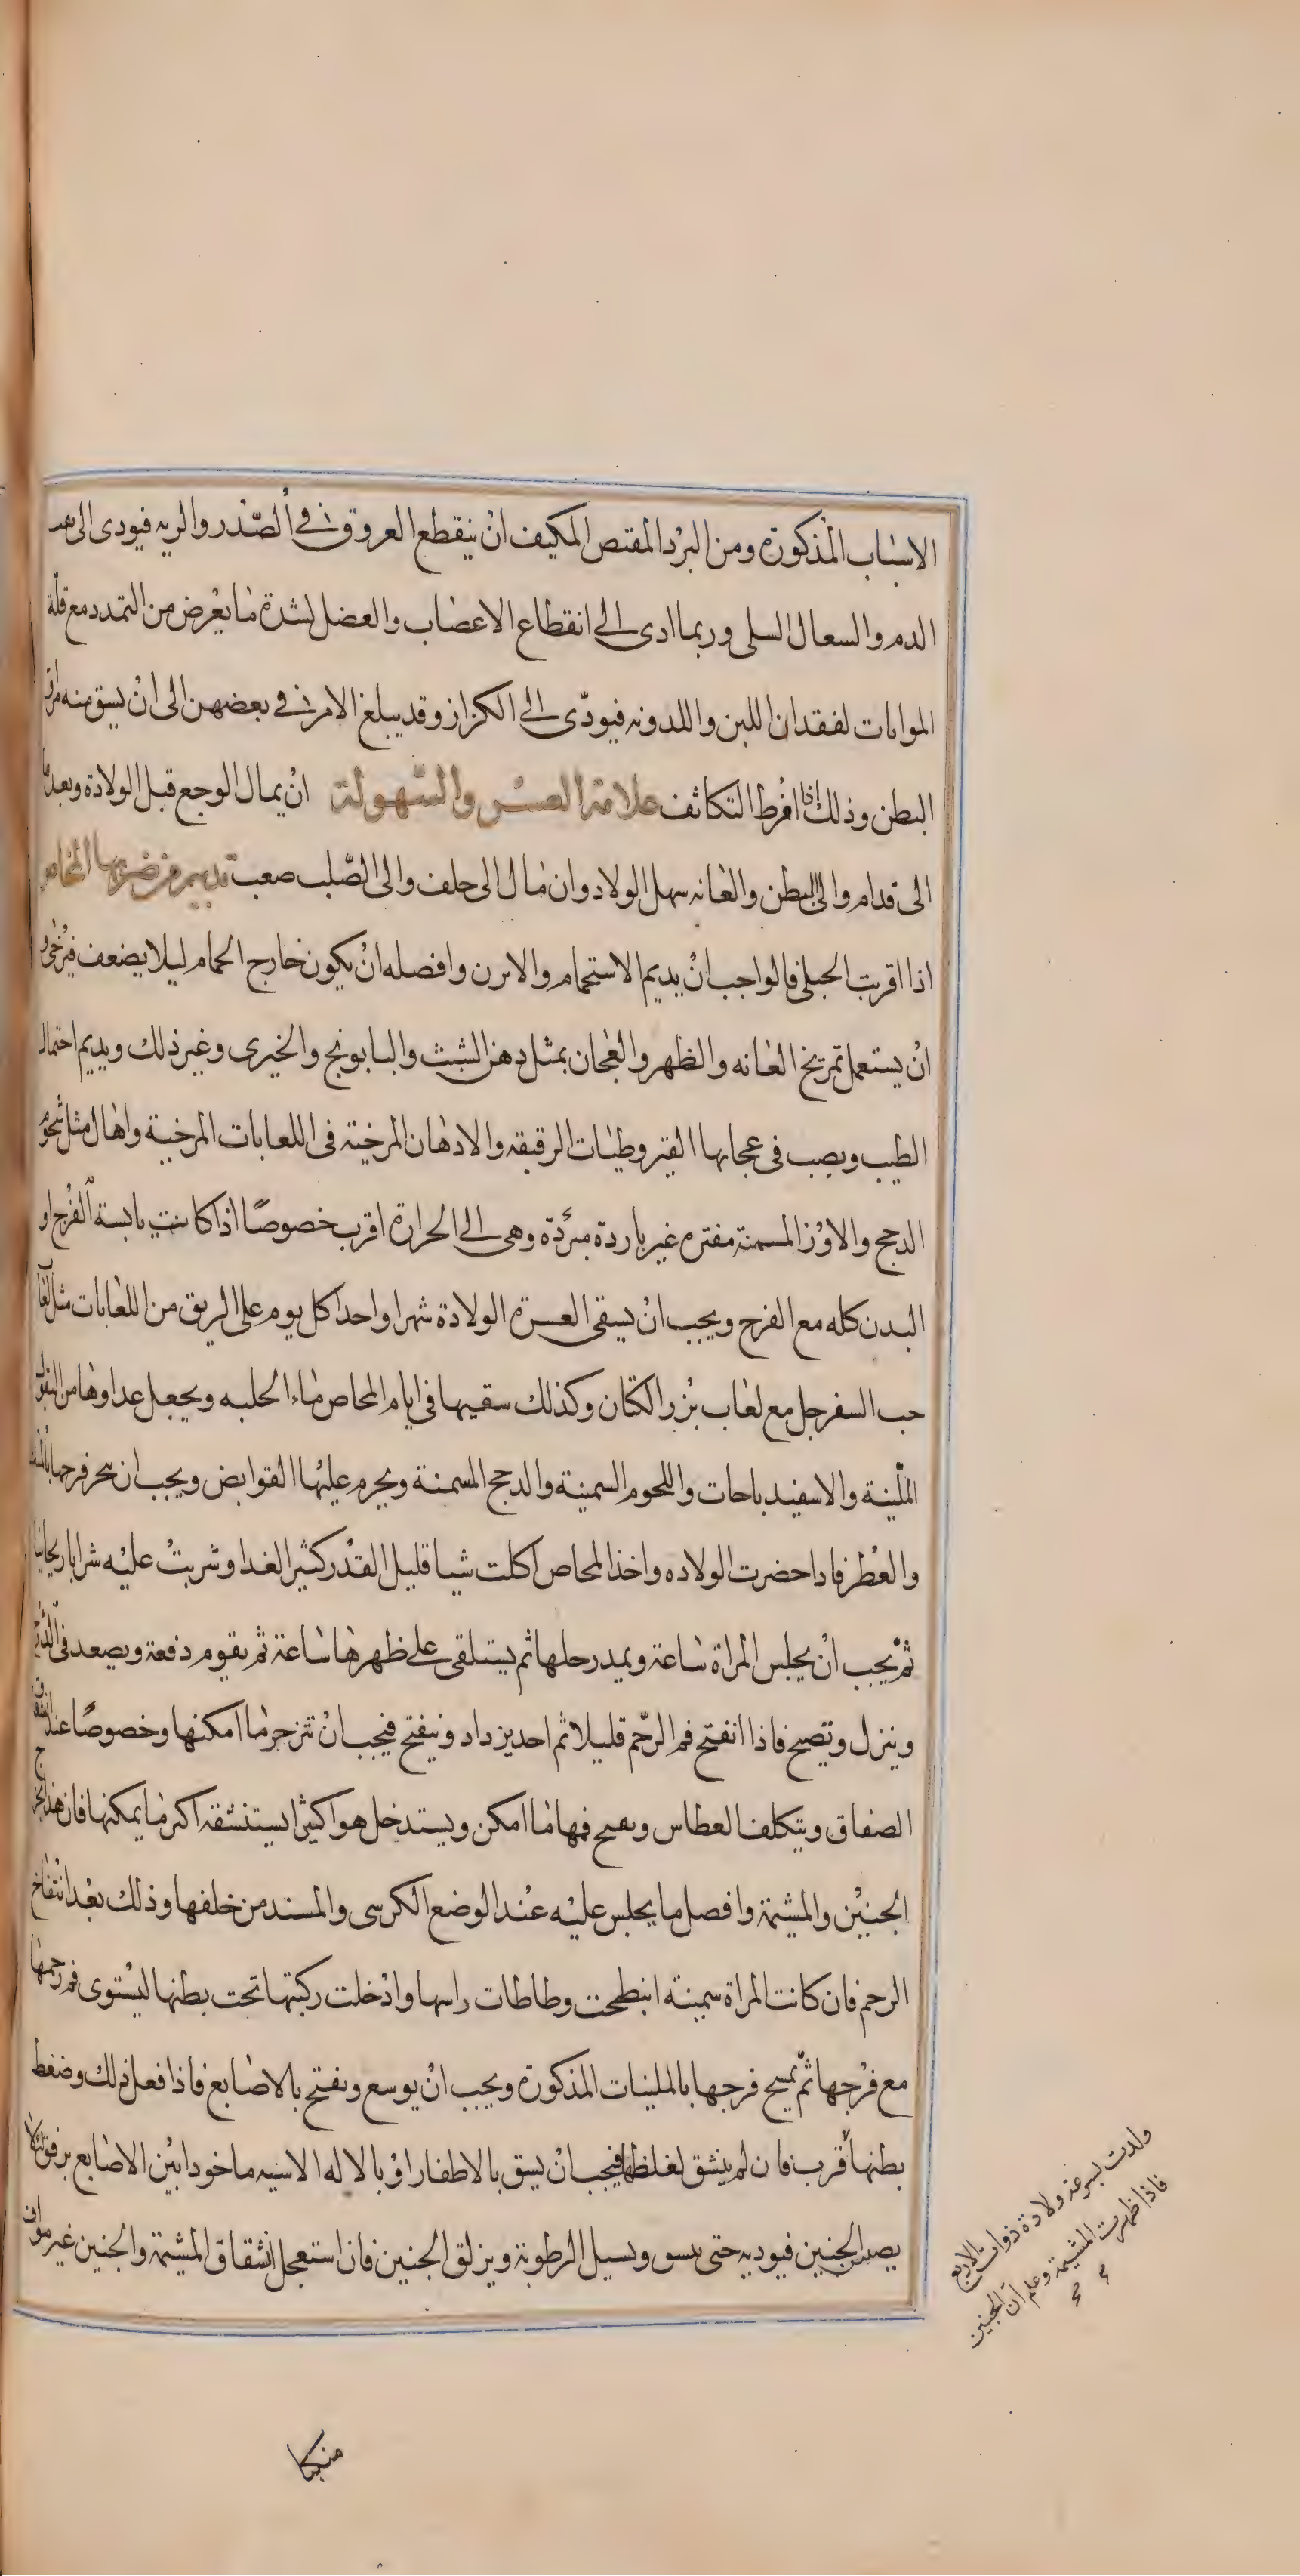 الاسباب المذكورة ومن البرد المقبص المكيف ان ينقطع العروق في الصدر والريه فيودى الى نفث
الدم والسعال السلى وربما ادى الى انقطاع الاعصاب والعضل لشدة ما يعرض من التمدد مع قلة
المواتات لفقدان اللين واللدونه فيودى الى الكزاز وقد يبلغ الامر في بعضهن الى ان يسق منه مراق
البطن وذلك اذا افرط التكاثف علامة العسر والسهولة ان يمال الوجع قبل الولادة وبعدها
الى قدام والى البطن والعانه سهل الولاد وان مال الى خلف والى الصلب صعبت تدبير من ضربها المخاض
اذا اقربت الحبلى فالواجب ان يديم الاستحمام والابرن وافصله ان يكون خارج الحمام ليلا يضعف فيرخى و
ان يستعمل تمريخ العانه والظهر والعجان بمثل دهن الشبث والبابونج والخيرى وغير ذلك ويديم احتمال
الطيب ويصب فى عجانها القيروطيات الرقيقه والادهان المرخية فى اللعابات المرخية واهال مثل شحوم
الدجج والاوز المسمنة مفتره غير باردة مبردة وهى الى الحرارة اقرب خصوصا اذا كانت يابسة الفرج او
البدن كله مع الفرج ويجب ان يسقى العسرة الولادة شهرا واحدا كل يوم على الريق من اللعابات مثل لعاب
حب السفرجل مع لعاب بزر الكتان وكذلك سقيها فى ايام المخاض ماء الحلبه ويجعل عداوها من البقول
الملينة والاسفيدباحات واللحوم السمينة والدجج المسمنة ويحرم عليها القوابض ويجب ان يبخر فرجها بالمسك
والعطر فاذا حضرت الولاده واخذ المخاص اكلت شيا قليل القدر كثير الغدا وشربت عليه شرابا ريحانيا
ثم يجب ان يجلس المراة ساعة ويمد رجلها ثم يستلقى على ظهرها ساعة ثم يقوم دفعة ويصعد فى الدرج
وينزل وتصيح فاذا انفتح فم الرحم قليلا ثم احد يزداد وينفتح فيجب ان تتزحر ما امكنها وخصوصا عند انشقاق
الصفاق ويتكلف العطاس ويفتح فمها ما امكن ويستدخل هوا كثيرا يستنشقه اكثر ما يمكنها فان هذا يخرج
الجنين والمشيمة وافصل ما يجلس عليه عند الوضع الكرسى والمسند من خلفها وذلك بعد انتفاخ
الرحم فان كانت المراة سمينة انبطحت وطاطات راسها وادخلت ركبتها تحت بطنها ليستوى فم رحمها
مع فرجها ثم يمسح فرجها بالملينات المذكورة ويجب ان يوسع ويفتح بالاصابع فاذا فعل ذلك وضغط
بطنها اقرب فان لم ينشق لغلظها فيجب ان يسق بالاظفار او بالاله الاسيه ماخودا بين الاصابع برفق لئلا
يصب الجنين فيوديه حتى ينسق ويسيل الرطوبة ويزلق الجنين فان استعجل انشقاق المشيمة والجنين غير مواف
ولدت بسرعة ولادة ذوات الاربع
فاذا ظهرت المشيمة وعلم ان الجنين
منكبا